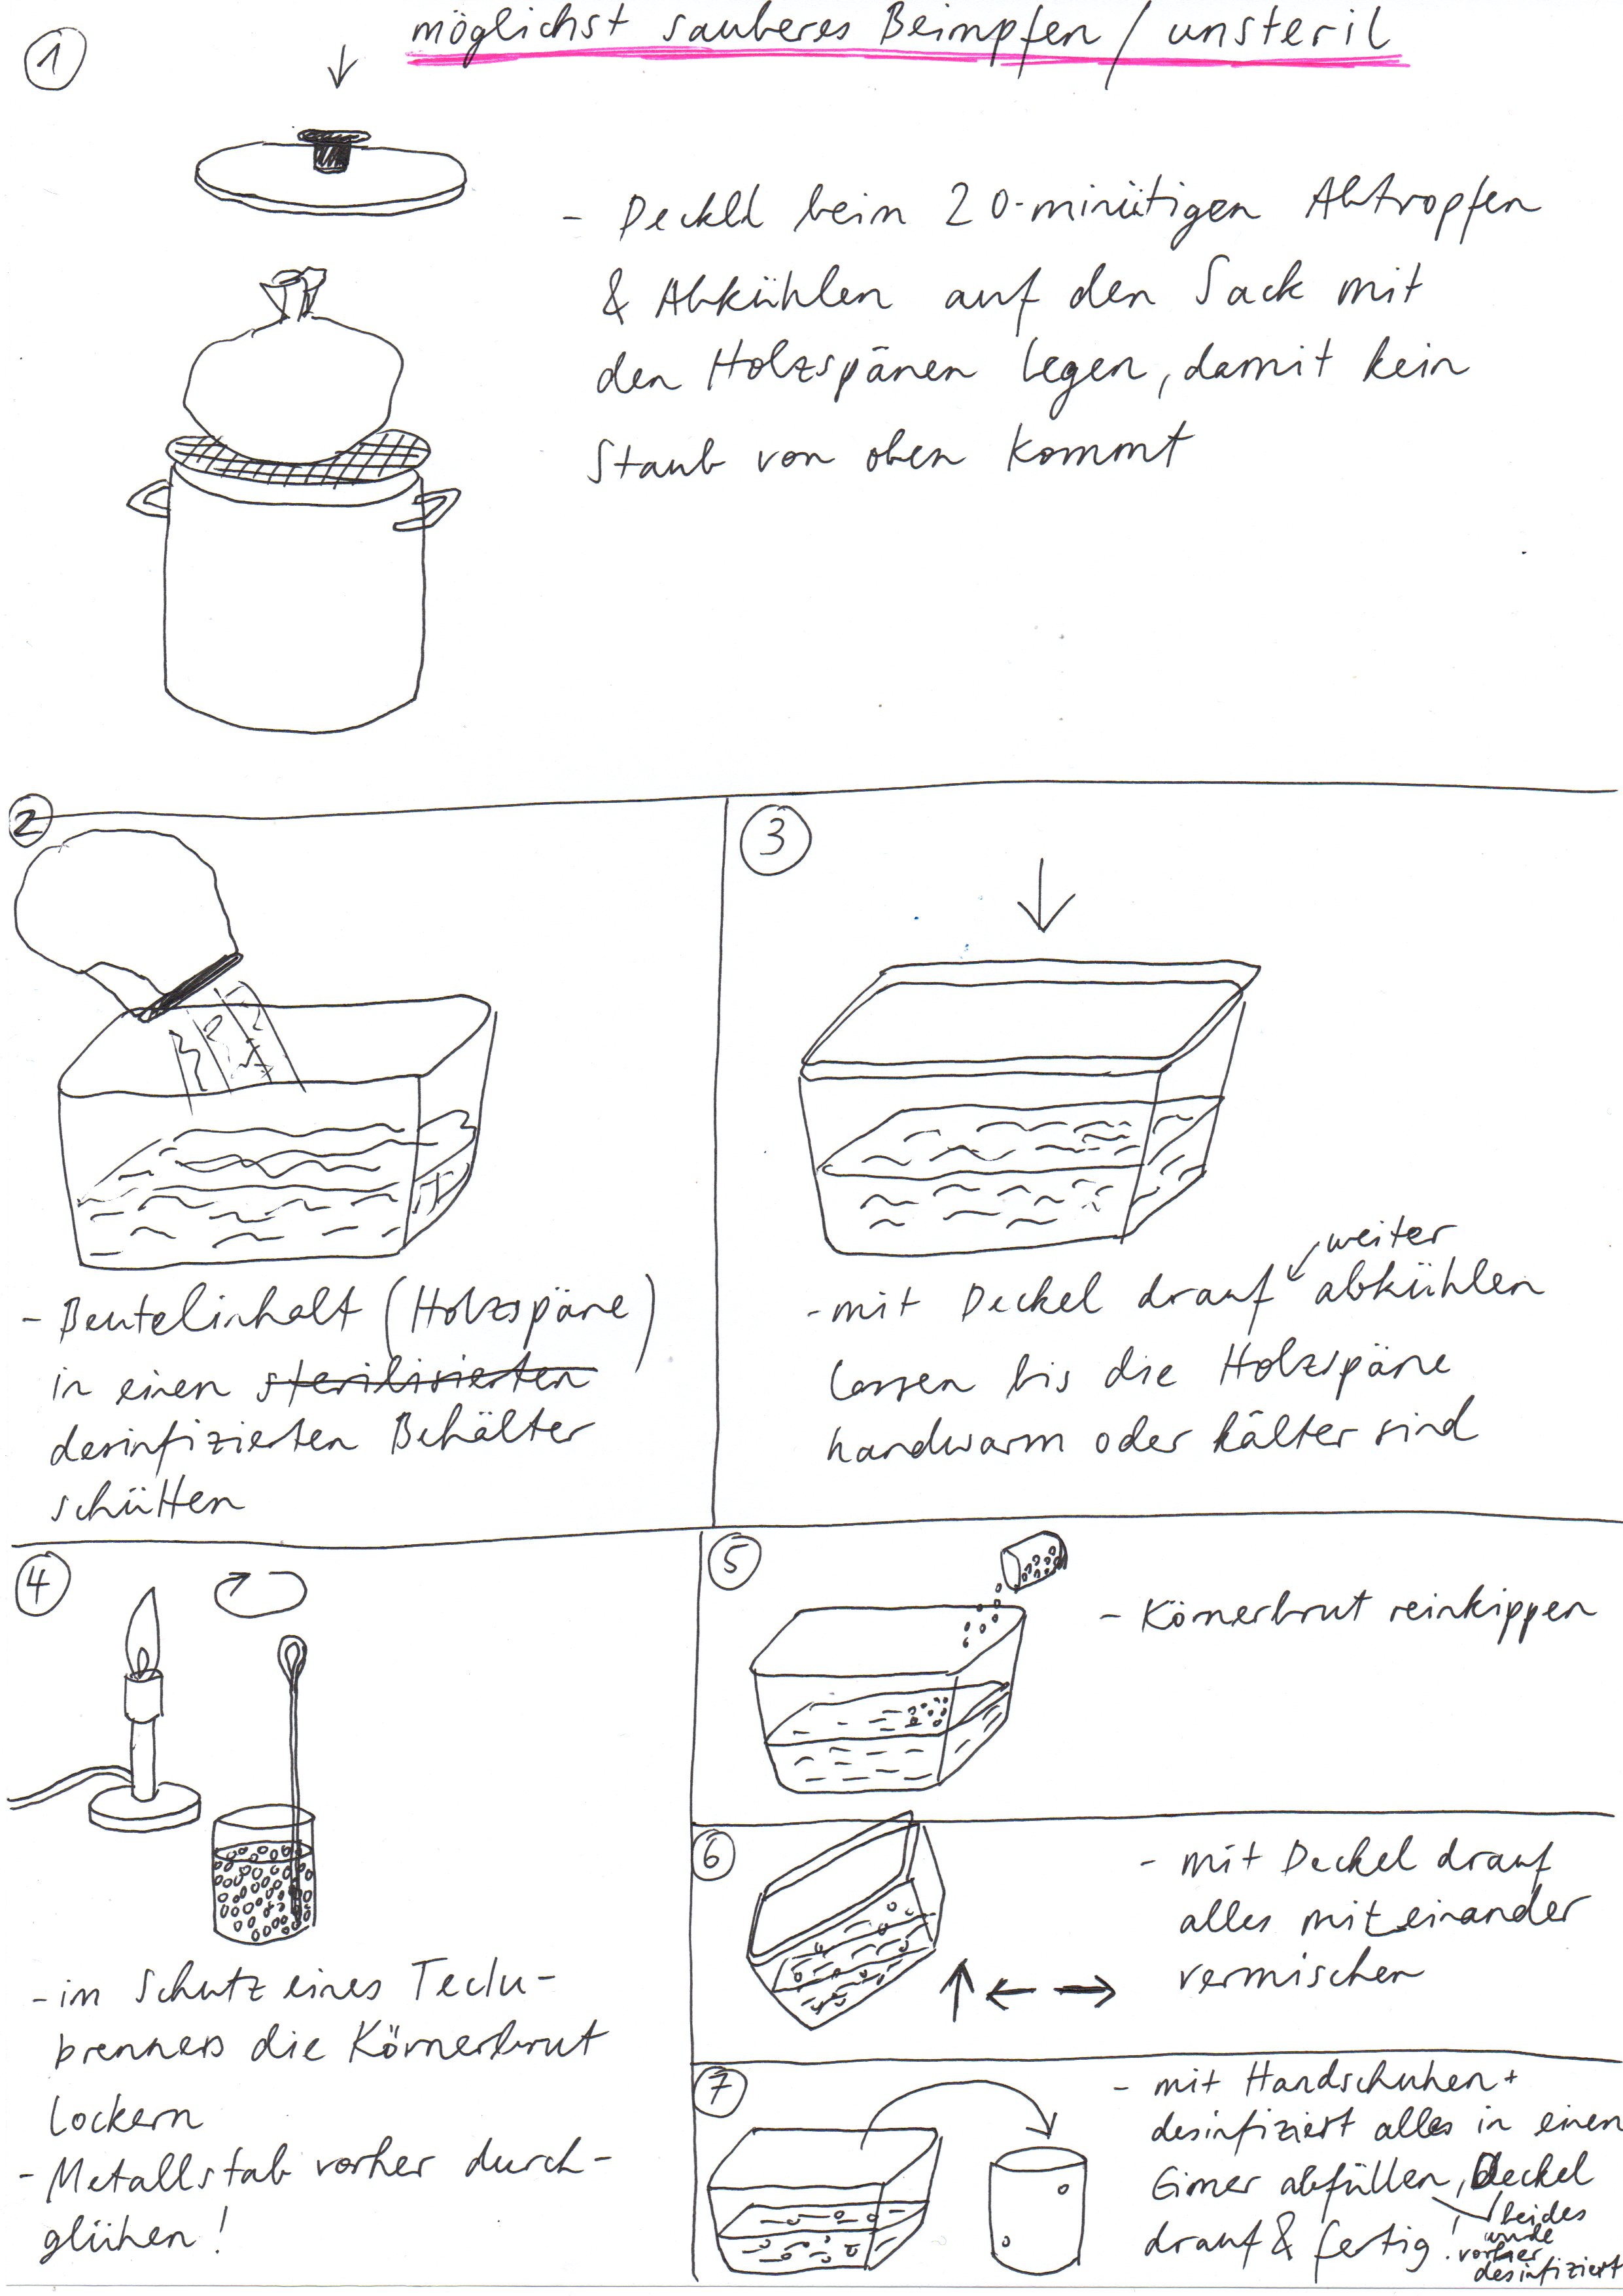 möglichst sauberes Beimpfen / unsteril
1
- Deckel beim 20-minütigen Abtropfen
& Abkühlen auf den Sack mit
den Holzspänen legen, damit kein
Staub von oben kommt
2
- Beutelinhalt (Holzspäne)
in einen sterilisierten
desinfizierten Behälter
schütten
3
weiter
- mit Deckel drauf abkühlen
lassen bis die Holzspäne
handwarm oder kälter sind
4
- im Schutz eines Teclu-
brenners die Körnerbrut
lockern
- Metallstab vorher durch-
glühen!
5
- Körnerbrut reinkippen
6
- mit Deckel drauf
alles miteinander
vermischen
7
- mit Handschuhen +
desinfiziert alles in einen
Eimer abfüllen, Deckel
drauf & fertig!
beides
wurde
vorher
desinfiziert